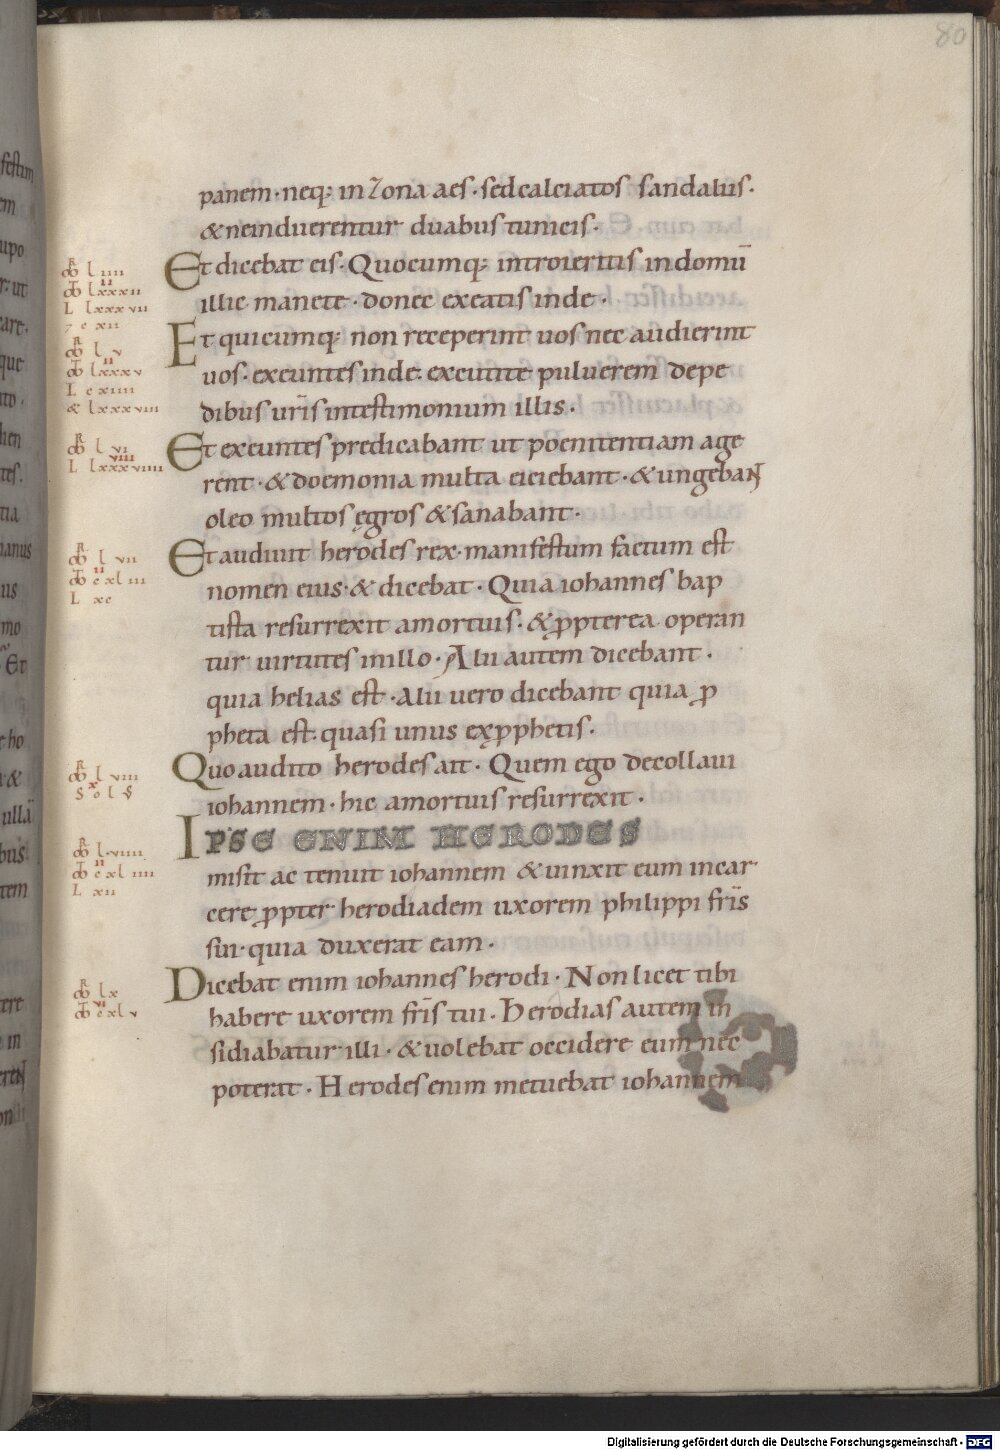 80
panem · neq; in zona aes · sed calciatos sandaliis ·
& ne induerentur duabus tunicis ·
Et dicebat eis · Quocumq; introieritis in domū
illic manete · donec exeatis inde ·
Et quicumq; non receperint uos nec audierint
uos · exeuntes inde · excutite puluerem de pe
dibus ur̄is in testimonium illis ·
Et exeuntes predicabant ut poenitentiam age
rent · & doemonia multa eiciebant · & ungebant
oleo multos ęgros & sanabant ·
Et audiuit herodes rex · manifestum factum est
nomen eius · & dicebat · Quia iohannes bap
tista resurrexit a mortuis · & ꝓpterea operan
tur uirtutes in illo · Alii autem dicebant ·
quia helias est · Alii uero dicebant quia ꝓ
pheta est · quasi unus ex ꝓphetis ·
Quo audito herodes ait · Quem ego decollaui
iohannem · hic a mortuis resurrexit ·
IPSE ENIM HERODES
misit ac tenuit iohannem & uinxit eum in car
cere ꝓpter herodiadem uxorem philippi fr̄is
sui · quia duxerat eam ·
Dicebat enim iohannes herodi · Non licet tibi
habere uxorem fr̄is tui · Herodias autem in
sidiabatur illi · & uolebat occidere eum nec
poterat · Herodes enim metuebat iohannem
Digitalisierung gefördert durch die Deutsche Forschungsgemeinschaft - DFG